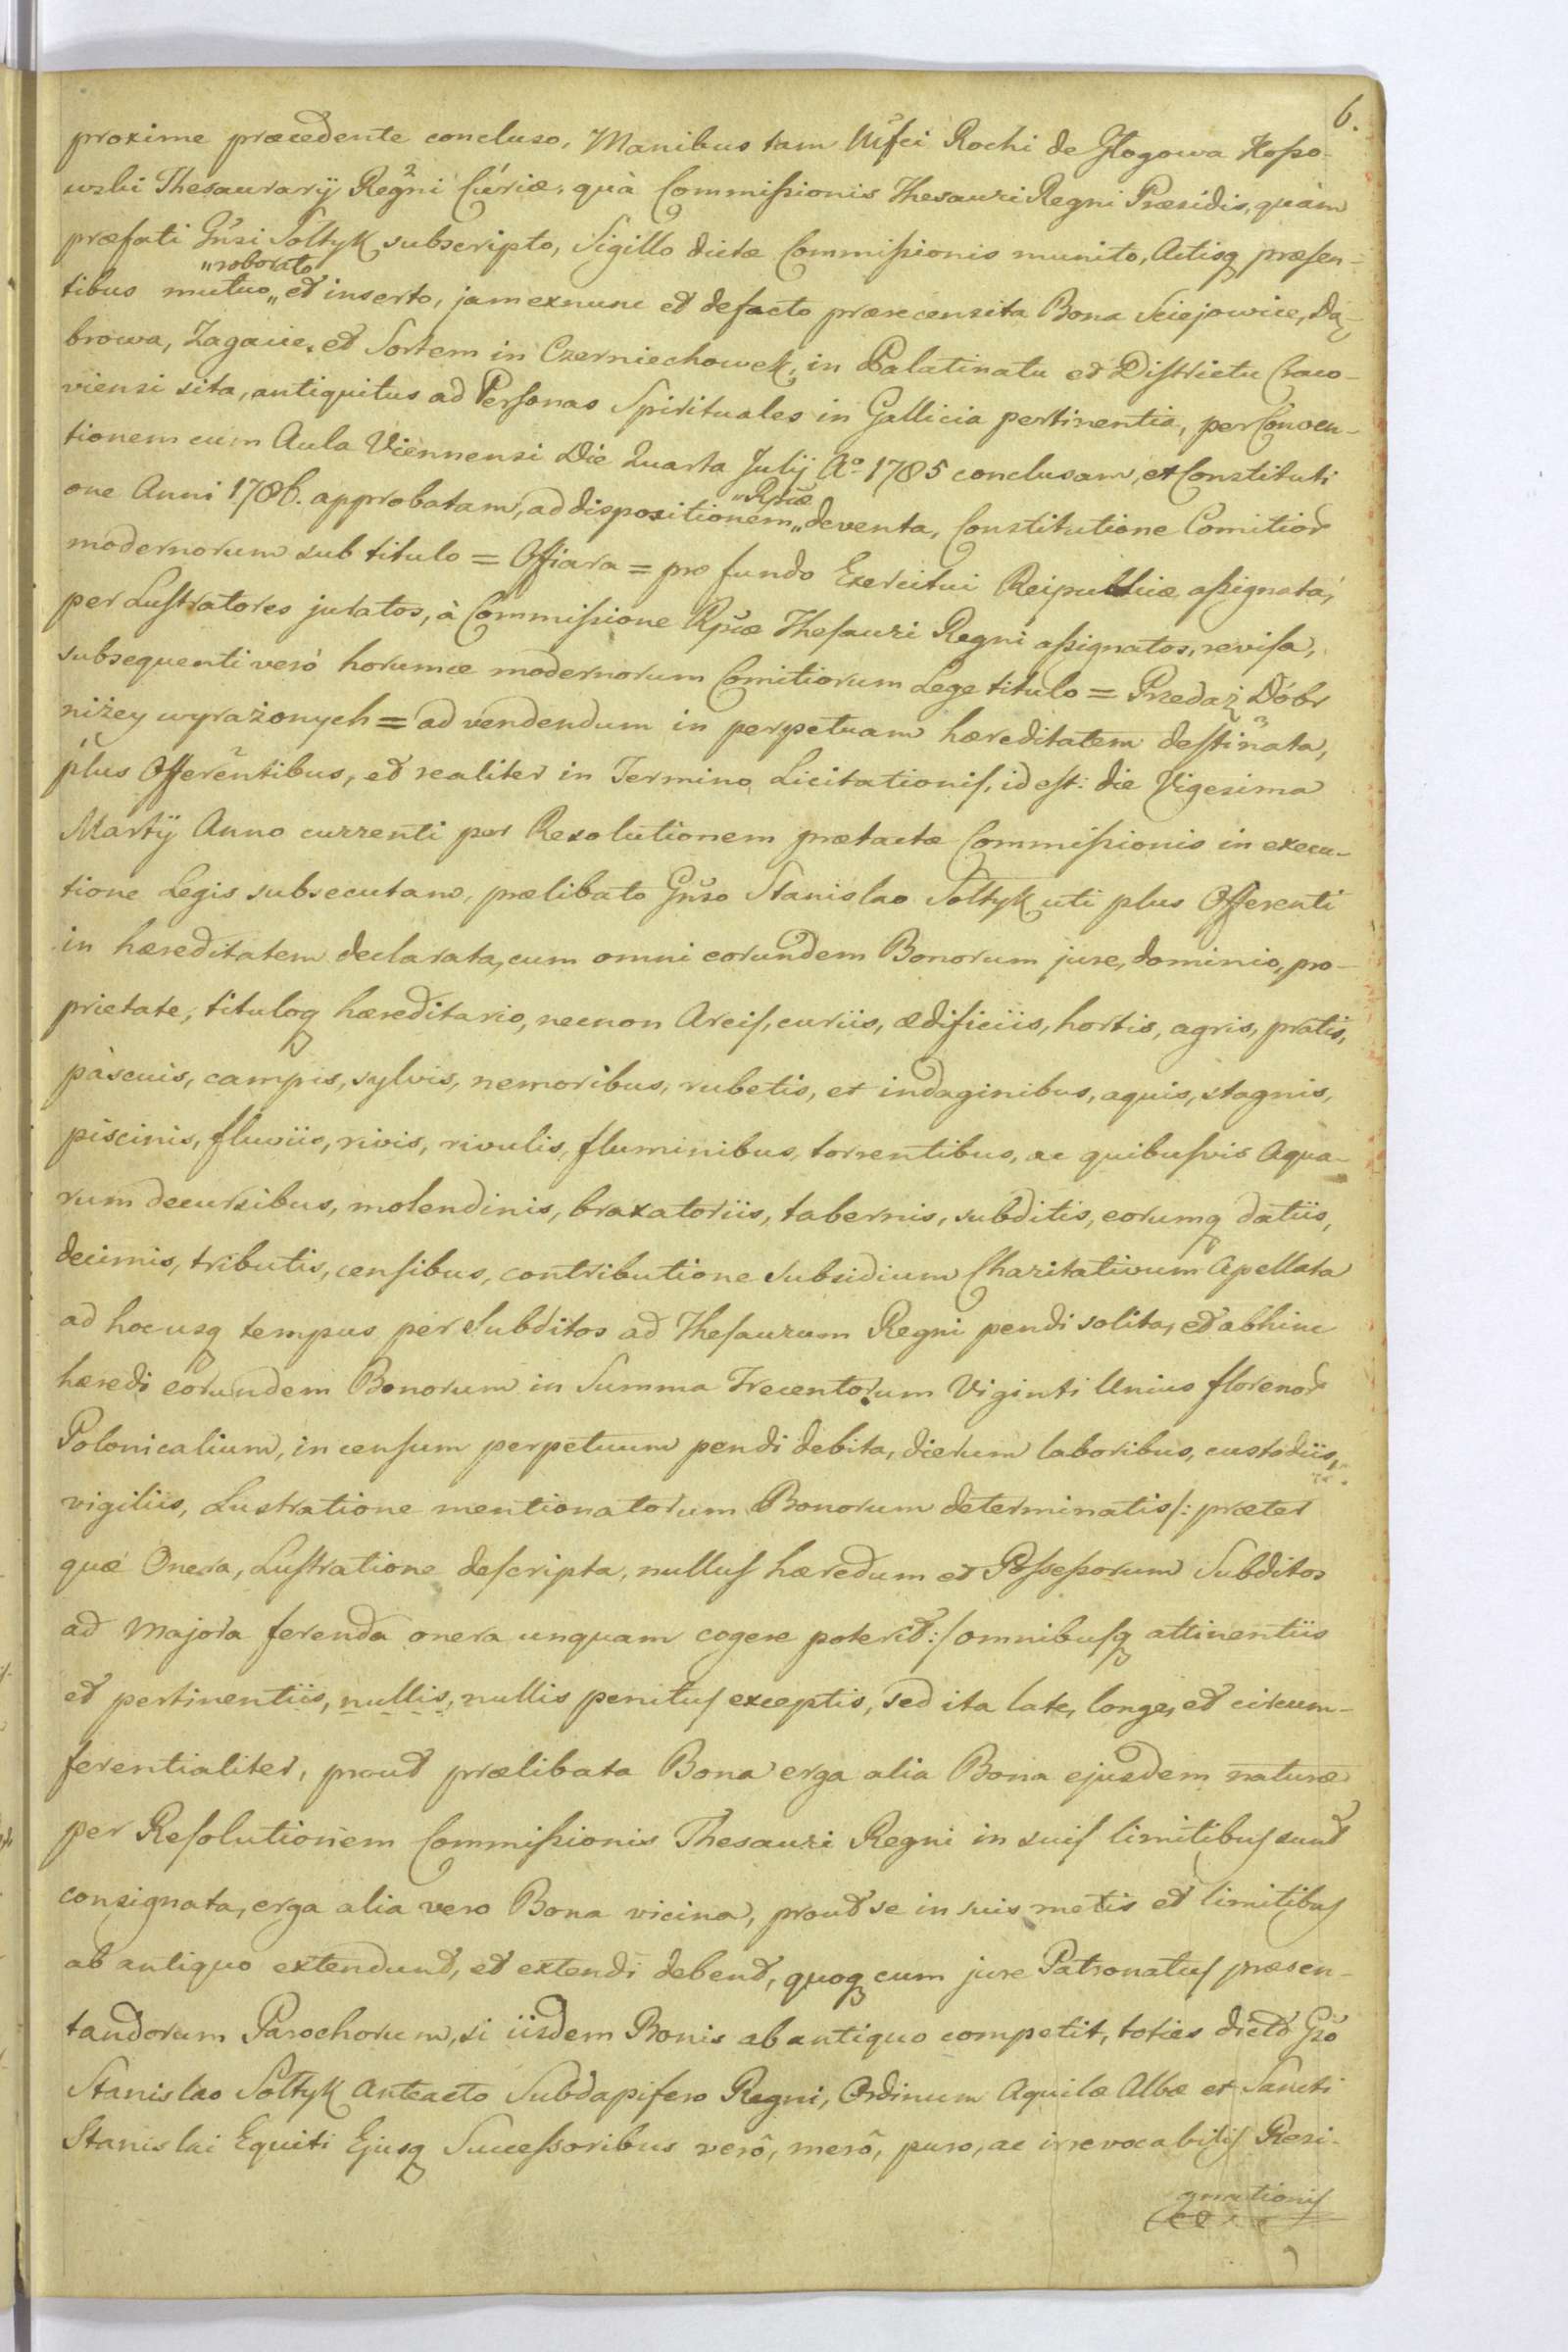 6.
proxime præcedente concluso, Manibus tam Mfci Rochi de Głogowa Kosso-
wski Thesaurarÿ Regni Curiæ, quà Commissionis Thesauri Regni Præsidis, quàm
præfati Gnsi Sołtyk subscripto, Sigillo dictæ Commissionis munito, Actisq præsen-
„roborato
tibus mutuo „ et inserto, jam exnunc et defacto præcensita Bona Sciejowice, Dą-
browa, Zagacie, et Sortem in Czerniechowek, in Palatinatu et Districtu Craco-
viensi sita, antiquitus ad Personas Spirituales in Gallicia pertinentia, per Conven-
tionem cum Aula Viennensi Die Quarta Julÿ Aº 1785 conclusam, et Constituti
„Rpcæ
one Anni 1786. approbatam, ad dispositionem „ deventa, Constitutione Comitior
modernorum sub titulo = Offiara = pro fundo Exercitui Reipublicæ assignata,
per Lustratores juratos, à Commissione Rpcæ Thesauri Regni assignatos, revisa,
subsequenti verò horumce modernorum Comitiorum Lege titulo = Przedaż Dóbr
niżey wyrażonych = ad vendendum in perpetuam hæreditatem destinata,
plus Offerentibus, et realiter in Termino Licitationis, id est: die Vigesima
Martÿ Anno currenti per Resolutionem prætactæ Commissionis in execu-
tione Legis subsecutam, prælibato Gnso Stanislao Sołtyk uti plus Offerenti
in hæreditatem declarata, cum omni eorundem Bonorum jure, dominio, pro-
prietate, tituloq hæreditario, necnon Arcis, curiis, ædificiis, hortis, agris, pratis,
pàscuis, campis, sylvis, nemoribus, rubetis, et indaginibus, aquis, stagnis,
piscinis, fluviis, rivis, rivulis, fluminibus, torrentibus, ac quibusvis Aqua-
rum decursibus, molendinis, braxatoriis, tabernis, subditis, eorumq datiis,
decimis, tributis, censibus, contributione Subsidium Charitativum Apellata
ad hocusq tempus per Subditos ad Thesaurum Regni pendi solita, et abhinc
hæredi eorundem Bonorum in Summa Trecentorum Viginti Unius florenor
Polonicalium, in censum perpetuum pendi debita, dierum laboribus, custodiis,
vigiliis, Lustratione mentionatorum Bonorum determinatis /: præter
quæ Onera, Lustratione descripta, nullus hæredum et Possessorum Subditos
ad Majora ferenda onera unquam cogere poterit :/ omnibusq attinentiis
et pertinentiis, nullis, nullis penitus exceptis, sed ita late, longe, et circum-
ferentialiter, prout prælibata Bona erga alia Bona ejusdem naturæ
per Resolutionem Commissionis Thesauri Regni in suis limitibus sunt
consignata, erga alia vero Bona vicina, prout se in suis metis et limitibus
ab antiquo extendunt, et extendi debent, quoq cum jure Patronatus præsen-
tandorum Parochorum, si iisdem Bonis ab antiquo competit, toties dicto Gso
Stanislao Sołtyk Anteacto Subdapifero Regni, Ordinum Aquilæ Albæ et Sancti
Stanislai Equiti Ejusq Successoribus verô, merô, puro, ac irrevocabilis Resi-
gnationis